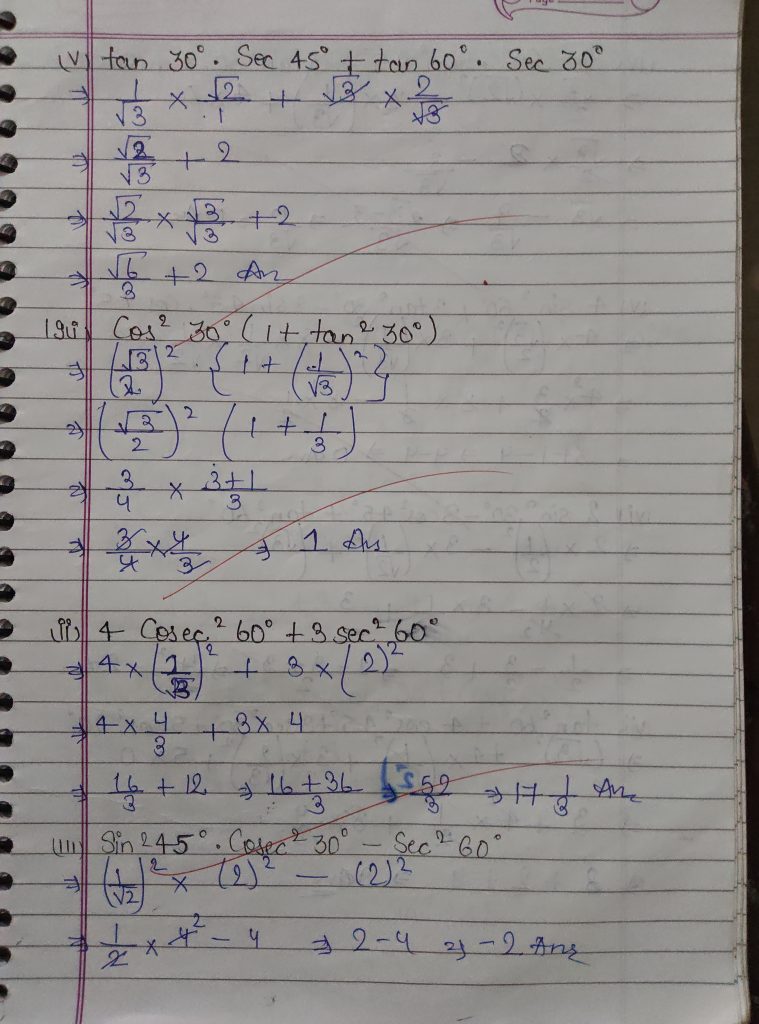 (v) tan 30°. Sec 45° + tan 60°. Sec 30°
⇒ 1/√3 × √2/1 + √3 × 2/√3
⇒ √2/√3 + 2
⇒ √2/√3 × √3/√3 + 2
⇒ √6/3 + 2 Ans
Cos² 30° (1 + tan² 30°)
⇒ (√3/2)² . {1 + (1/√3)²}
⇒ (√3/2)² (1 + 1/3)
⇒ 3/4 × 3+1/3
⇒ 3/4 × 4/3 ⇒ 1 Ans
(ii) 4 Cosec² 60° + 3 sec² 60°
⇒ 4 × (2/√3)² + 3 × (2)²
⇒ 4 × 4/3 + 3 × 4
⇒ 16/3 + 12 ⇒ 16+36/3 ⇒ 52/3 ⇒ 17 1/3 Ans
(iii) Sin² 45°. Cosec² 30° – Sec² 60°
⇒ (1/√2)² × (2)² – (2)²
⇒ 1/2 × 4² – 4 ⇒ 2 – 4 ⇒ –2 Ans